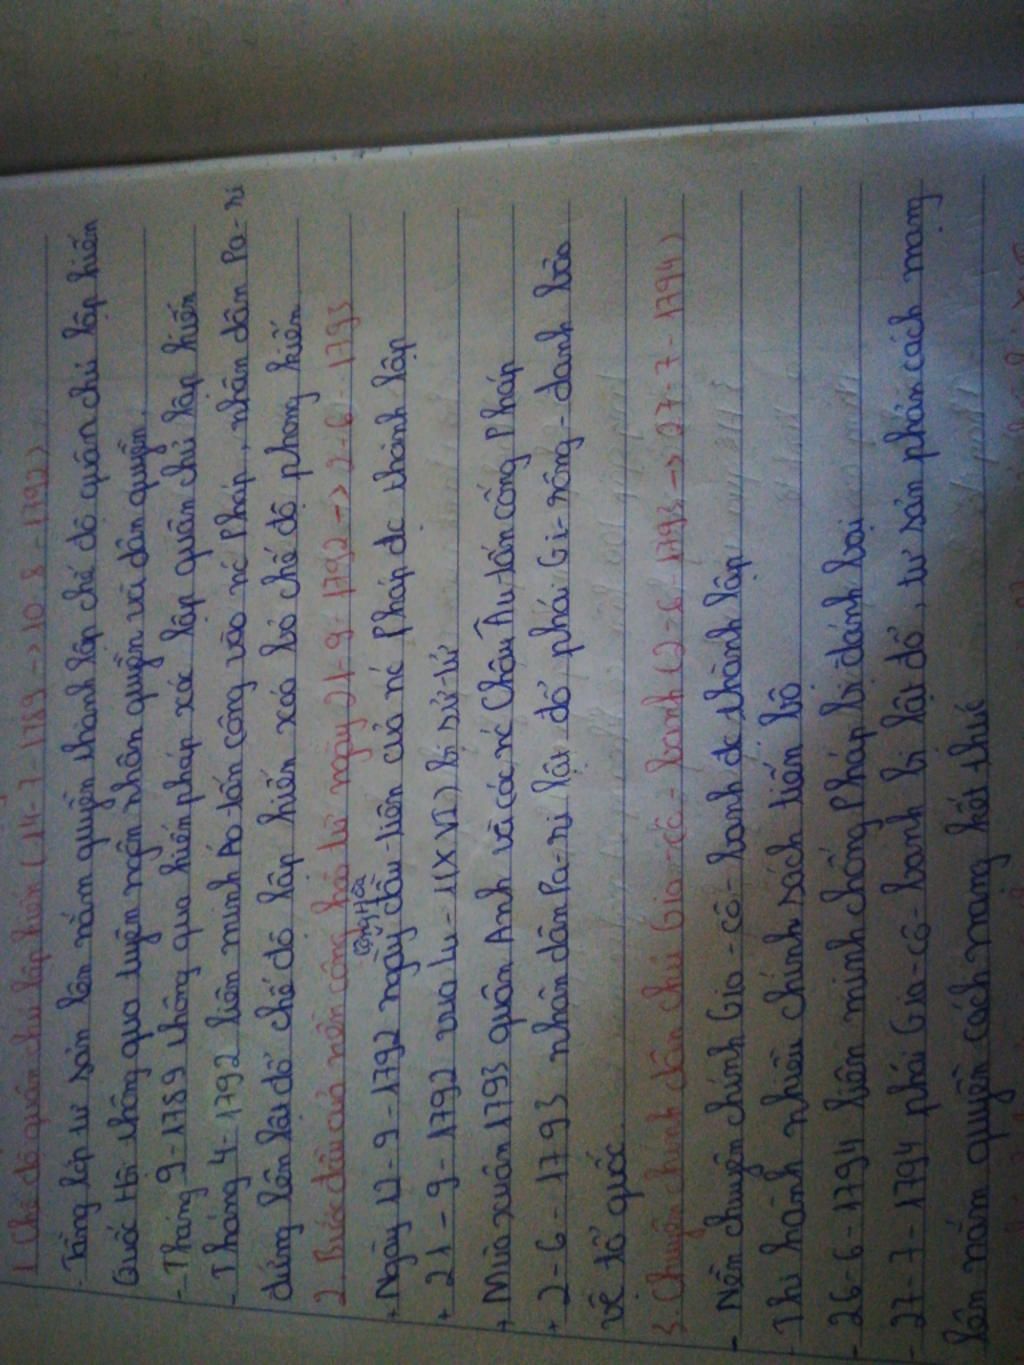 1. Chế độ quân chủ lập hiến (14-7-1789 -> 10-8-1792)
- Tầng lớp tư sản lên nắm quyền thành lập chế độ quân chủ lập hiến
Quốc Hội thông qua tuyên ngôn nhân quyền và dân quyền.
- Tháng 9-1789 thông qua hiến pháp xác lập quân chủ lập hiến
- Tháng 4-1792 liên minh Áo-tấn công vào nc Pháp, nhân dân Pa-ri
đứng lên lật đổ chế độ lập hiến xóa bỏ chế độ phong kiến
2. Bước đầu của nền cộng hòa từ ngày 21-9-1792 -> 2-6-1793
cộng hòa
+ Ngày 12-9-1792 ngày đầu tiên của nc Pháp đc thành lập
+ 21-9-1792 vua lu-i (XVI) bị xử tử
+ Mùa xuân 1793 quân Anh và các nc Châu Âu tấn công Pháp
+ 2-6-1793 nhân dân Pa-ri lật đổ phái Gi-rông-danh bảo
vệ tổ quốc.
3. Chuyên chính dân chủ Gia-cô-banh (2-6-1793 -> 27-7-1794)
- Nền chuyên chính Gia-cô-banh đc thành lập
- Thi hành nhiều chính sách tiến bộ
- 26-6-1794 liên minh chống Pháp bị đánh bại
- 27-7-1794 phái Gia-cô-banh bị lật đổ, tư sản phản cách mạng
lên nắm quyền cách mạng kết thúc